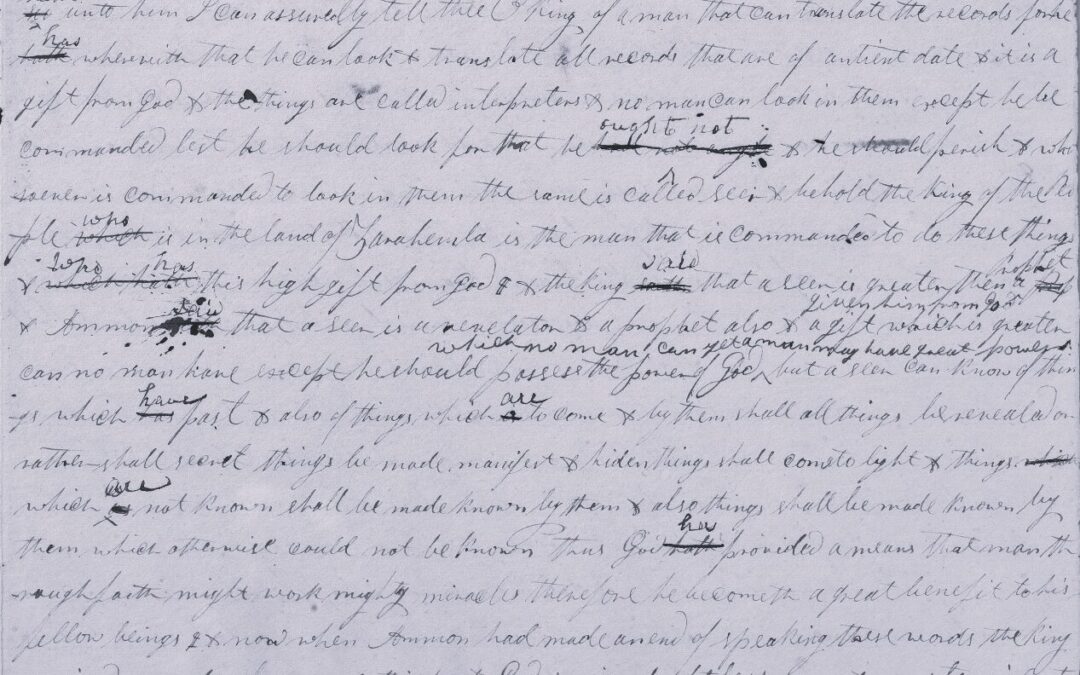 unto them I can assuredly tell thee O king of a man that can translate the records for he
has
hath wherewith that he can look & translate all records that are of antient date & it is a
gift from God & the things are called interpreters & no man can look in them except he be
ought not
commanded lest he should look for that he had not ought & he should perish & who
soever is commanded to look in them the same is called seer & behold the king of the Peo
who
ple which is in the land of Zarahemla is the man that is commanded to do these things
who has said prophet
& which hath this high gift from God & the king saith that a seer is greater then a
said given him from God
& Ammon that a seer is a revelator & a prophet also & a gift which is greater
which no man can yet a man may have great power
can no man have except he should possess the power of God but a seer can know of thin
have are
gs which has past & also of things which is to come & by them shall all things be revealed or
rather shall secret things be made manifest & hiden things shall come to light & things
are
which is not known shall be made known by them & also things shall be made known by
has
them which otherwise could not be known thus God hath provided a means that man th
rough faith might work mighty miracles therefore he becometh a great benefit to his
fellow beings & & now when Ammon had made an end of speaking these words the king